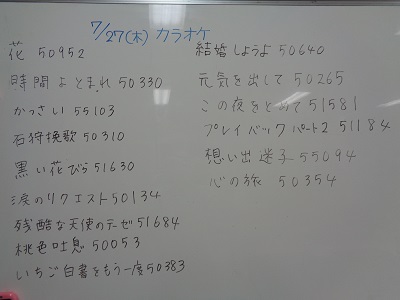 7/27(木) カラオケ
花 50952
時間よとまれ 50330
かっさい 55103
石狩挽歌 50310
黒い花びら 51630
涙のリクエスト 50134
残酷な天使のテーゼ 51684
桃色吐息 50053
いちご白書をもう一度 50383
結婚しようよ 50640
元気を出して 50265
この夜をとめて 51581
プレイバックパート2 51184
想い出迷子 55094
心の旅 50354